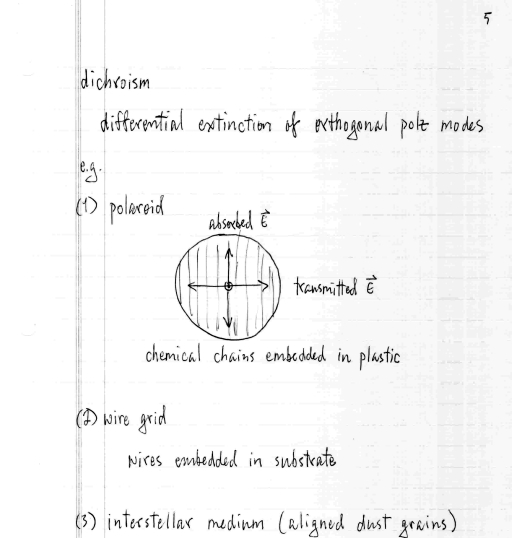 5
dichroism
differential extinction of orthogonal polz modes
e.g.
(1) polaroid
absorbed E⃗
transmitted E⃗
chemical chains embedded in plastic
(2) wire grid
wires embedded in substrate
(3) interstellar medium (aligned dust grains)